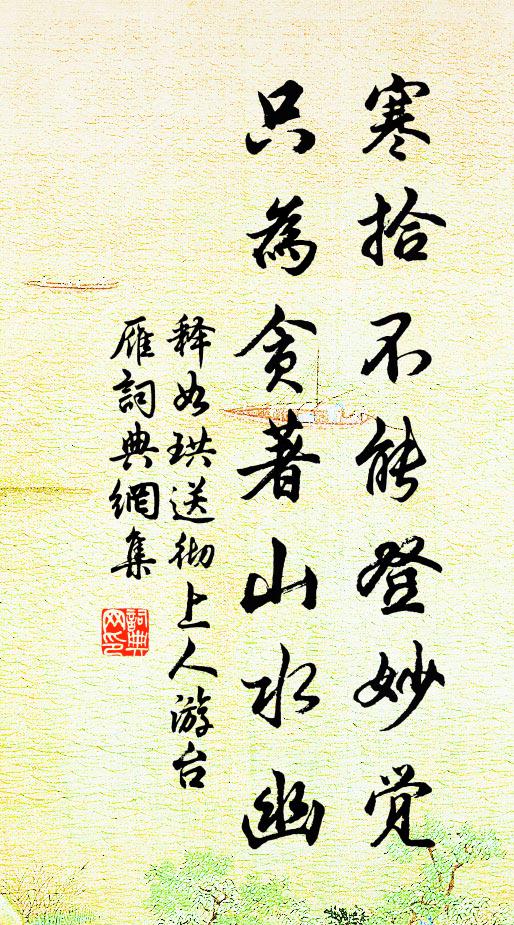 寒拾不能登妙觉
只為貪著山水幽
释如珙送彻上人游台
雁詞典網集
詞典网印